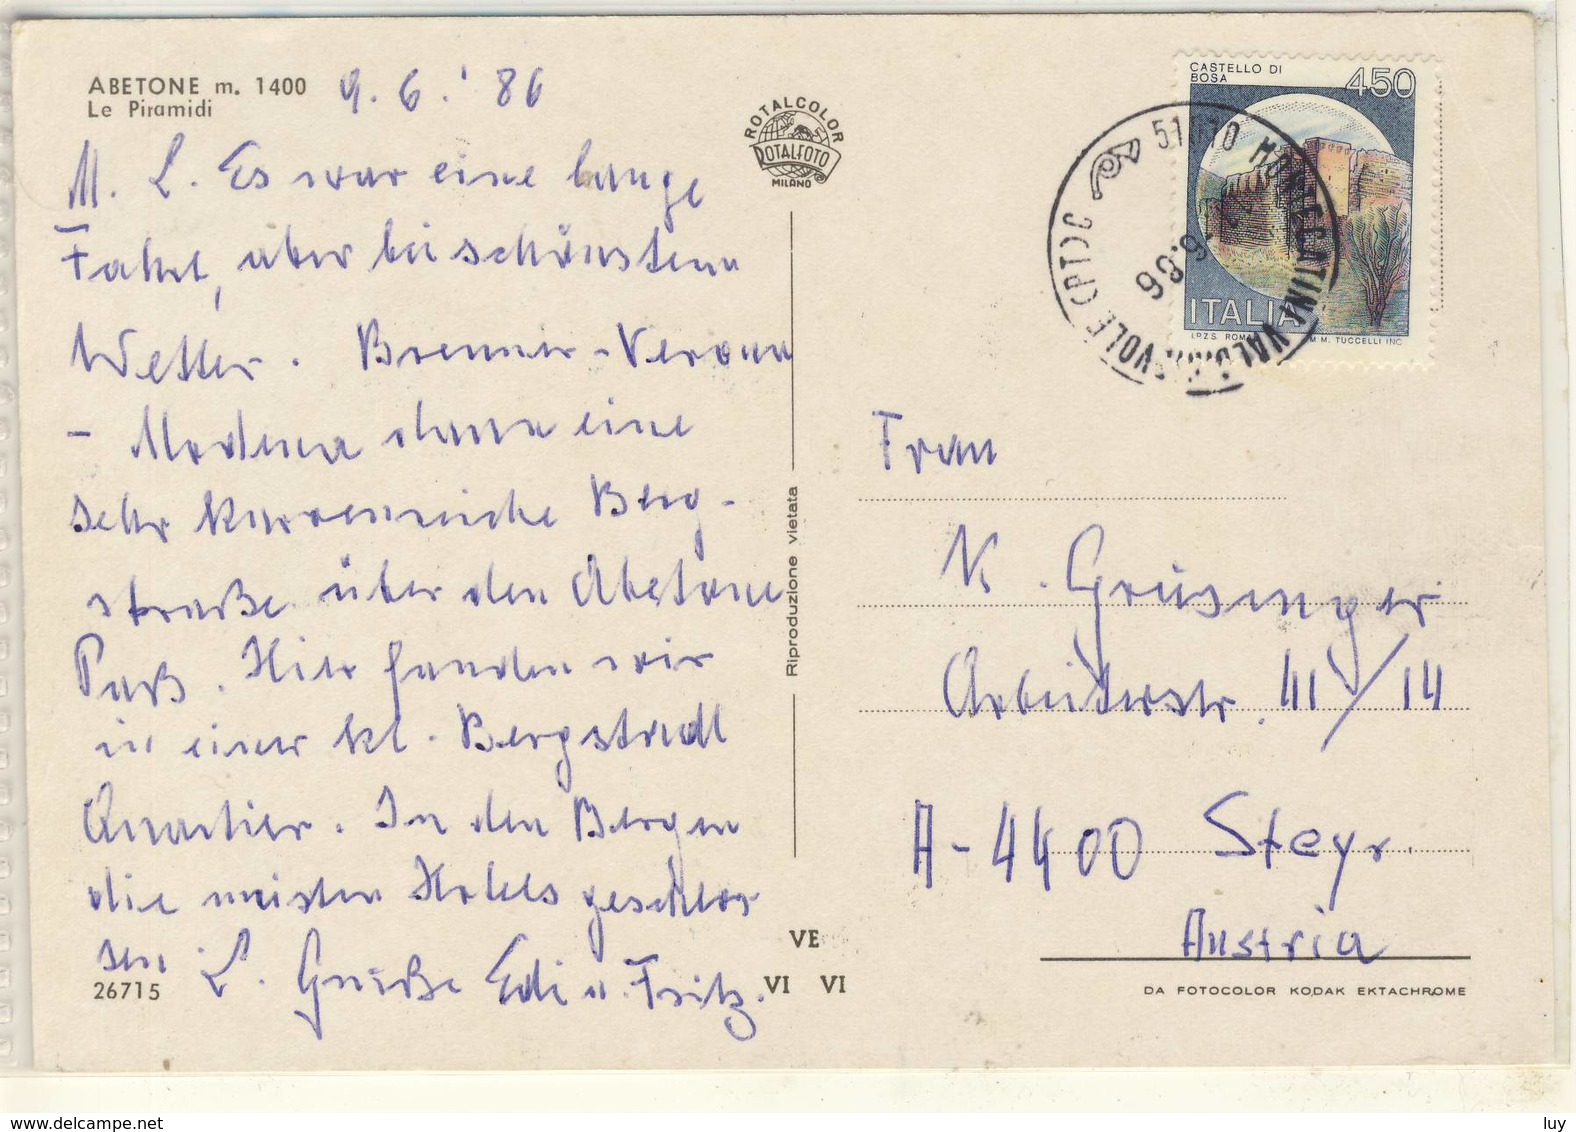 ABETONE m. 1400
Le Piramidi
9. 6. '86
M. L. Es war eine lange
Fahrt, aber bei schönstem
Wetter. Brenner-Verona
- Modena dann eine
sehr kurvenreiche Berg-
straße über den Abetone
Paß. Hier fanden wir
in einer kl. Bergstadt
Quartier. In den Bergen
die meisten Hotels geschlos
sen L. Grüße Edi u. Fritz.
26715
ROTALCOLOR
ROTALFOTO
MILANO
Riproduzione vietata
VE
VI VI
CASTELLO DI
BOSA
450
ITALIA
I.P.Z.S. ROMA
M.M. TUCCELLI INC.
MONTECATINI VAL
VOLE (PT)
.6.86
Frau
K. Grüsinger
Arbeiterstr. 41/14
A-4400 Steyr.
Austria
DA FOTOCOLOR KODAK EKTACHROME
www.delcampe.net
luy